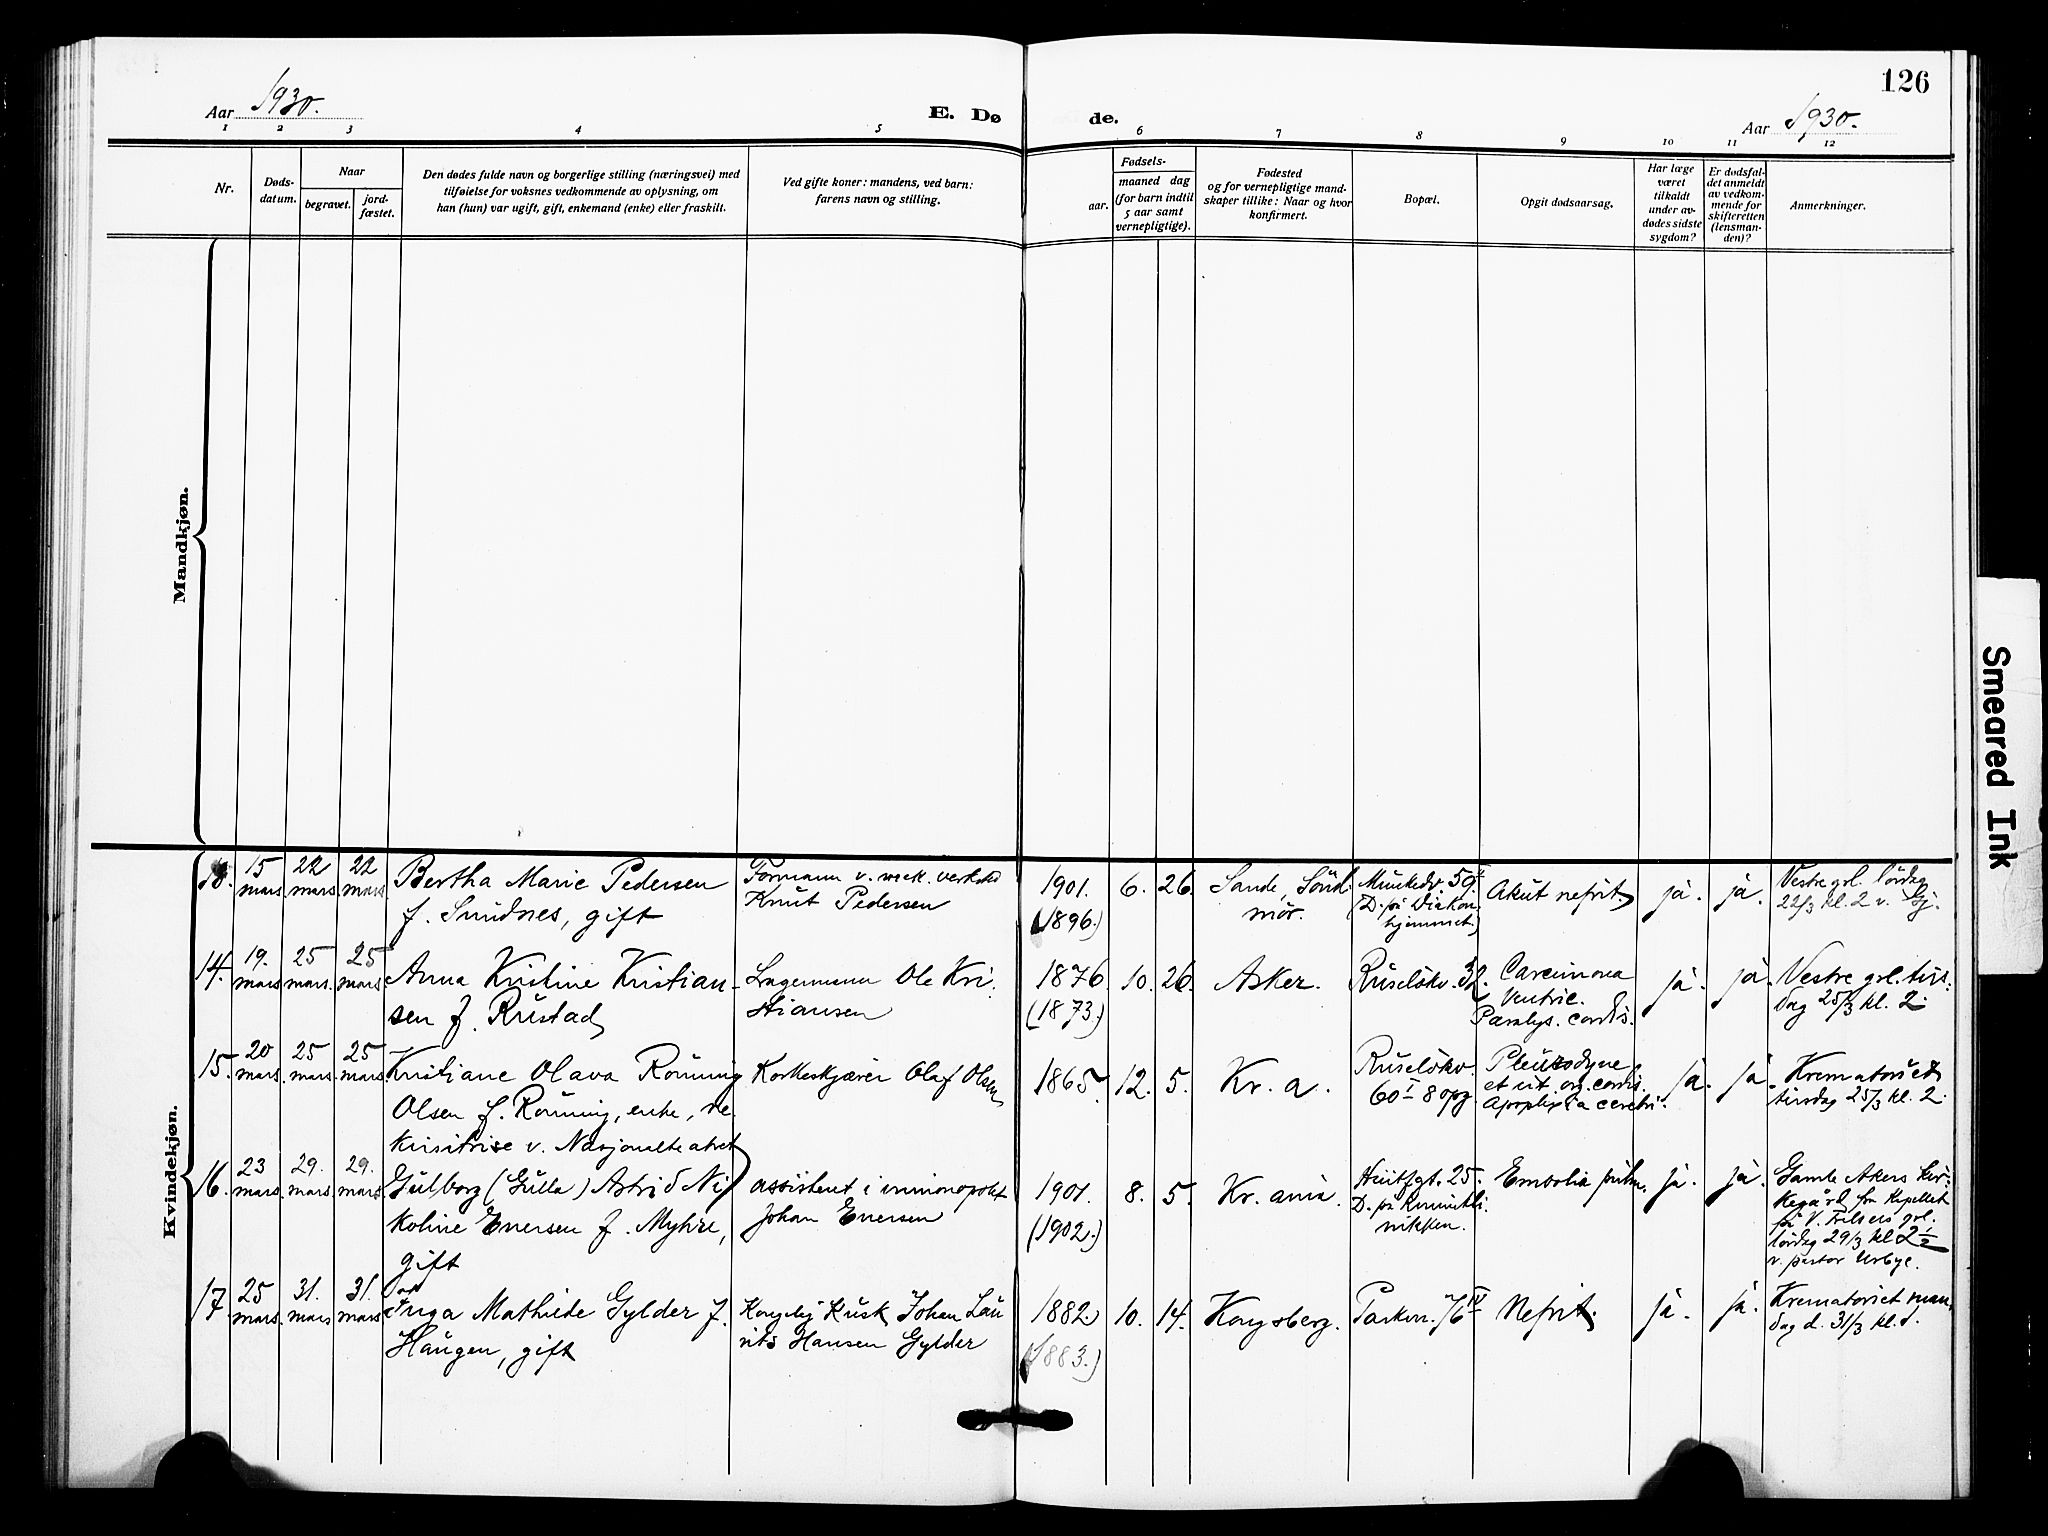 126
Aar 1930.
E. Dø
de.
Aar 1930.
1 2 3 4 5 6 7 8 9 10 11 12
Nr.
Døds-
datum.
Naar
begravet.
jord-
fæstet.
Den dødes fulde navn og borgerlige stilling (næringsvei) med
tilføielse for voksnes vedkommende av oplysning, om
han (hun) var ugift, gift, enkemand (enke) eller fraskilt.
Ved gifte koner: mandens, ved barn:
farens navn og stilling.
Fødsels-
aar.
maaned dag
(for barn indtil
5 aar samt
vernepligtige).
Fødested
og for vernepligtige mand-
skaper tillike: Naar og hvor
konfirmert.
Bopæl.
Opgit dødsaarsag.
Har læge
været
tilkaldt
under av-
dødes sidste
sygdom?
Er dødsfal-
det anmeldt
av vedkom-
mende for
skifteretten
(lensman-
den)?
Anmerkninger.
Mandkjøn.
Kvindekjøn.
15 mars 22 mars 22 mars
Bertha Marie Pedersen
f. Sundnes, gift
Formann v. mek. verksted
Knut Pedersen
1901. 6. 26.
(1896.)
Sande, Sönd-
mör.
Munkedv. 59
(D. på Diakon
hjemmet.)
Akut nefrit.
ja. ja.
Vestre grl. lördag
22/3 kl. 2 v.
14. 19. mars 25 mars. 25 mars
Anna Kristine Kristian-
sen f. Rustad
Lagermann Ole Kri-
stiansen
1876 10. 26.
(1873.)
Asker.
Ruselökv. 32.
Carcinoma
ventric.
Paralys. cordis.
ja. ja.
Vestre grl. tirs-
dag 25/3 kl. 2.
15. 20 mars 25 mars 25 mars
Kristiane Olava Rönning
Olsen f. Rönning, enke, re-
kvisitrise v. Nasjonalteatret
Korkeskjærer Olaf Olsen
1865. 12. 5.
Kr. a.
Ruselökv.
60 I 8 opg.
Pleurodyne
et vit. org. cordis.
Apoplexia cerebri.
ja. ja.
Krematoriet
tirsdag 25/3 kl. 2.
16. 23 mars 29. mars 29. mars
Gulborg (Gulla) Astrid Ni-
koline Enersen f. Myhre,
gift
assistent i vinmonopolet
Johan Enersen
1901. 8. 5.
(1902.)
Kr. ania.
Huitfgt. 25.
D. på Kvinnekli-
nikken.
Embolia pulm.
ja. ja.
Gamle Akers kir-
kegård fra Kapellet
på V. Frelsers grl.
lördag 29/3 kl 2 1/2
v. pastor Urbye.
17. 25 mars. 31. mars 31. mars
Inga Mathilde Gylder f.
Haugen, gift
Kongelig Kusk Johan Lau-
rits Hansen Gylder
1882. 10. 14.
(1883.)
Kongsberg.
Parkv. 76 IV
Nefrit.
ja. ja.
Krematoriet man-
dag d. 31/3 kl. 1.
Smeared Ink